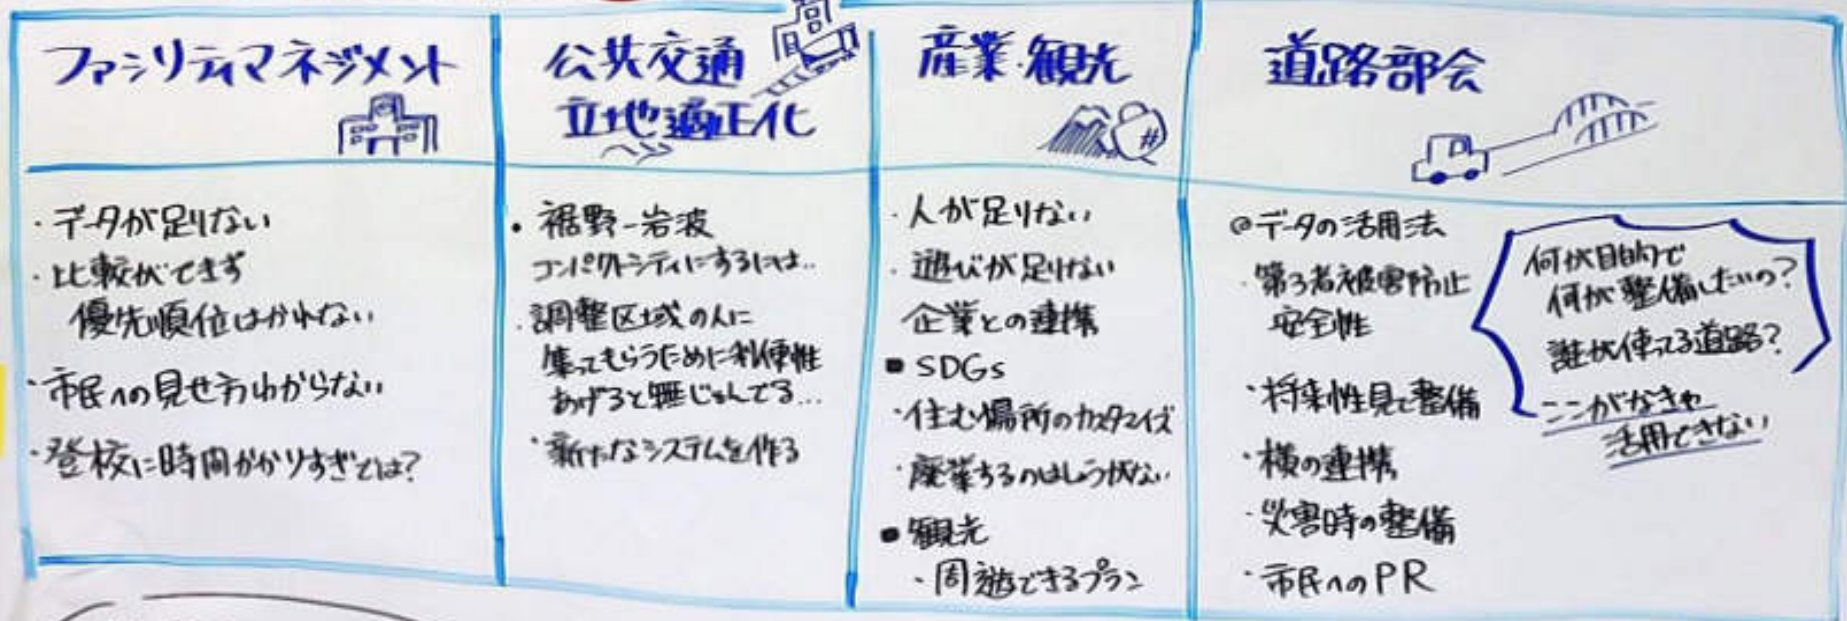 ファシリティマネジメント
・データが足りない
・比較ができず
優先順位はかれない
・市民への見せ方わからない
・登校に時間かかりすぎでは?
公共交通
立地適正化
・裾野-岩波
コンパクトシティにするには..
・調整区域の人に
集ってもらうために利便性
あげると無じゅんでる...
・新たなシステムを作る
産業・観光
・人が足りない
・遊びが足りない
企業との連携
■SDGs
・住む場所のカスタマイズ
・廃業するのはしょうがない
■観光
・周遊できるプラン
道路部会
@データの活用法
・第3者被害防止
安全性
・将来性見て整備
・横の連携
・災害時の整備
・市民へのPR
何が目的で
何が整備したいの?
誰が使ってる道路?
ここがなきゃ
活用できない